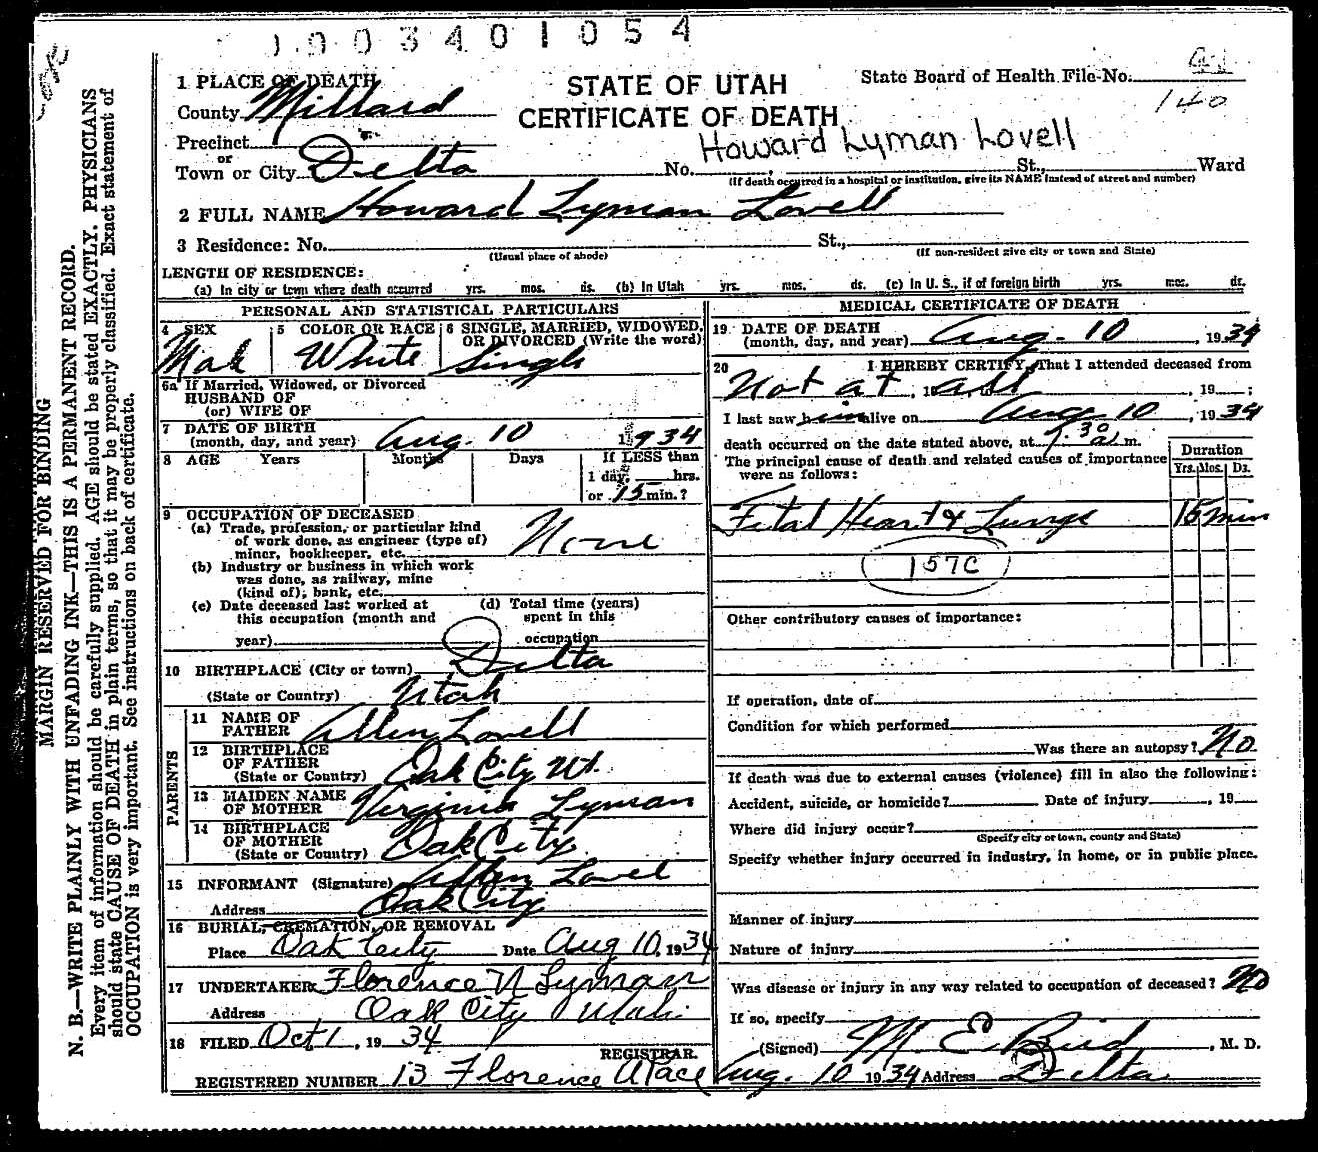 1003401054
1 PLACE OF DEATH
STATE OF UTAH
CERTIFICATE OF DEATH
State Board of Health File No.
140
County Millard
Precinct
or
Town or City Delta No. St., Ward
Howard Lyman Lovell
(If death occurred in a hospital or institution, give its NAME instead of street and number)
2 FULL NAME Howard Lyman Lovell
3 Residence: No. St.,
(Usual place of abode) (If non-resident give city or town and State)
LENGTH OF RESIDENCE:
(a) In city or town where death occurred yrs. mos. ds. (b) In Utah yrs. mos. ds. (c) In U. S., if of foreign birth yrs. mos. ds.
PERSONAL AND STATISTICAL PARTICULARS
4 SEX 5 COLOR OR RACE 6 SINGLE, MARRIED, WIDOWED, OR DIVORCED (Write the word)
Male White Single
6a If Married, Widowed, or Divorced
HUSBAND OF
(or) WIFE OF
7 DATE OF BIRTH
(month, day, and year) Aug. 10 1934
8 AGE Years Months Days If LESS than
1 day, hrs.
or 15 min.?
9 OCCUPATION OF DECEASED
(a) Trade, profession, or particular kind
of work done, as engineer (type of)
miner, bookkeeper, etc. None
(b) Industry or business in which work
was done, as railway, mine
(kind of); bank, etc.
(c) Date deceased last worked at
this occupation (month and
year)
(d) Total time (years)
spent in this
occupation
10 BIRTHPLACE (City or town) Delta
(State or Country) Utah
PARENTS
11 NAME OF
FATHER Allen Lovell
12 BIRTHPLACE
OF FATHER
(State or Country) Oak City Ut.
13 MAIDEN NAME
OF MOTHER Virginia Lyman
14 BIRTHPLACE
OF MOTHER
(State or Country) Oak City
15 INFORMANT (Signature) Allen Lovel
Address Oak City
16 BURIAL, CREMATION, OR REMOVAL
Place Oak City Date Aug 10, 1934
17 UNDERTAKER Florence N Lyman
Address Oak City Utah
18 FILED Oct 1, 1934
REGISTRAR.
REGISTERED NUMBER 13 Florence
MEDICAL CERTIFICATE OF DEATH
19 DATE OF DEATH
(month, day, and year) Aug. 10, 1934
20 I HEREBY CERTIFY, That I attended deceased from
Not at, 19 all, 19 ;
I last saw him alive on Aug 10, 1934
death occurred on the date stated above, at 7:30 a m.
The principal cause of death and related causes of importance
were as follows:
Duration
Yrs. Mos. Ds.
Fetal Heart & Lungs 15 min
157C
Other contributory causes of importance:
If operation, date of
Condition for which performed
Was there an autopsy? No
If death was due to external causes (violence) fill in also the following:
Accident, suicide, or homicide? Date of injury, 19
Where did injury occur?
(Specify city or town, county and State)
Specify whether injury occurred in industry, in home, or in public place.
Manner of injury
Nature of injury
Was disease or injury in any way related to occupation of deceased? No
If so, specify
(Signed) M E Bird, M. D.
Aug. 10 1934 Address Delta
MARGIN RESERVED FOR BINDING
N. B.—WRITE PLAINLY WITH UNFADING INK—THIS IS A PERMANENT RECORD.
Every item of information should be carefully supplied. AGE should be stated EXACTLY. PHYSICIANS
should state CAUSE OF DEATH in plain terms, so that it may be properly classified. Exact statement of
OCCUPATION is very important. See instructions on back of certificate.